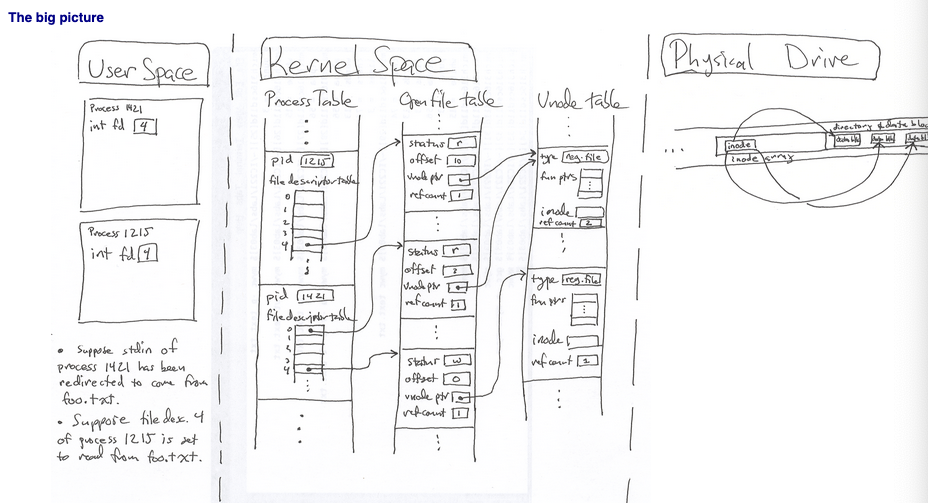 The big picture
User Space
Process 1421
int fd 4
Process 1215
int fd 4
• Suppose stdin of
process 1421 has been
redirected to come from
foo.txt.
• Suppose file desc. 4
of process 1215 is set
to read from foo.txt.
Kernel Space
Process Table
pid 1215
file descriptor table
0
1
2
3
4
pid 1421
file descriptor table
0
1
2
3
4
Open file table
status r
offset 10
vnode ptr
ref count 1
status r
offset
vnode ptr
ref count 1
status w
offset 0
vnode ptr
ref count 1
Vnode table
type reg. file
fun ptrs
inode
ref count 2
type reg. file
fun ptrs
inode
ref count
Physical Drive
directory & data bloc
...
inode
inode array